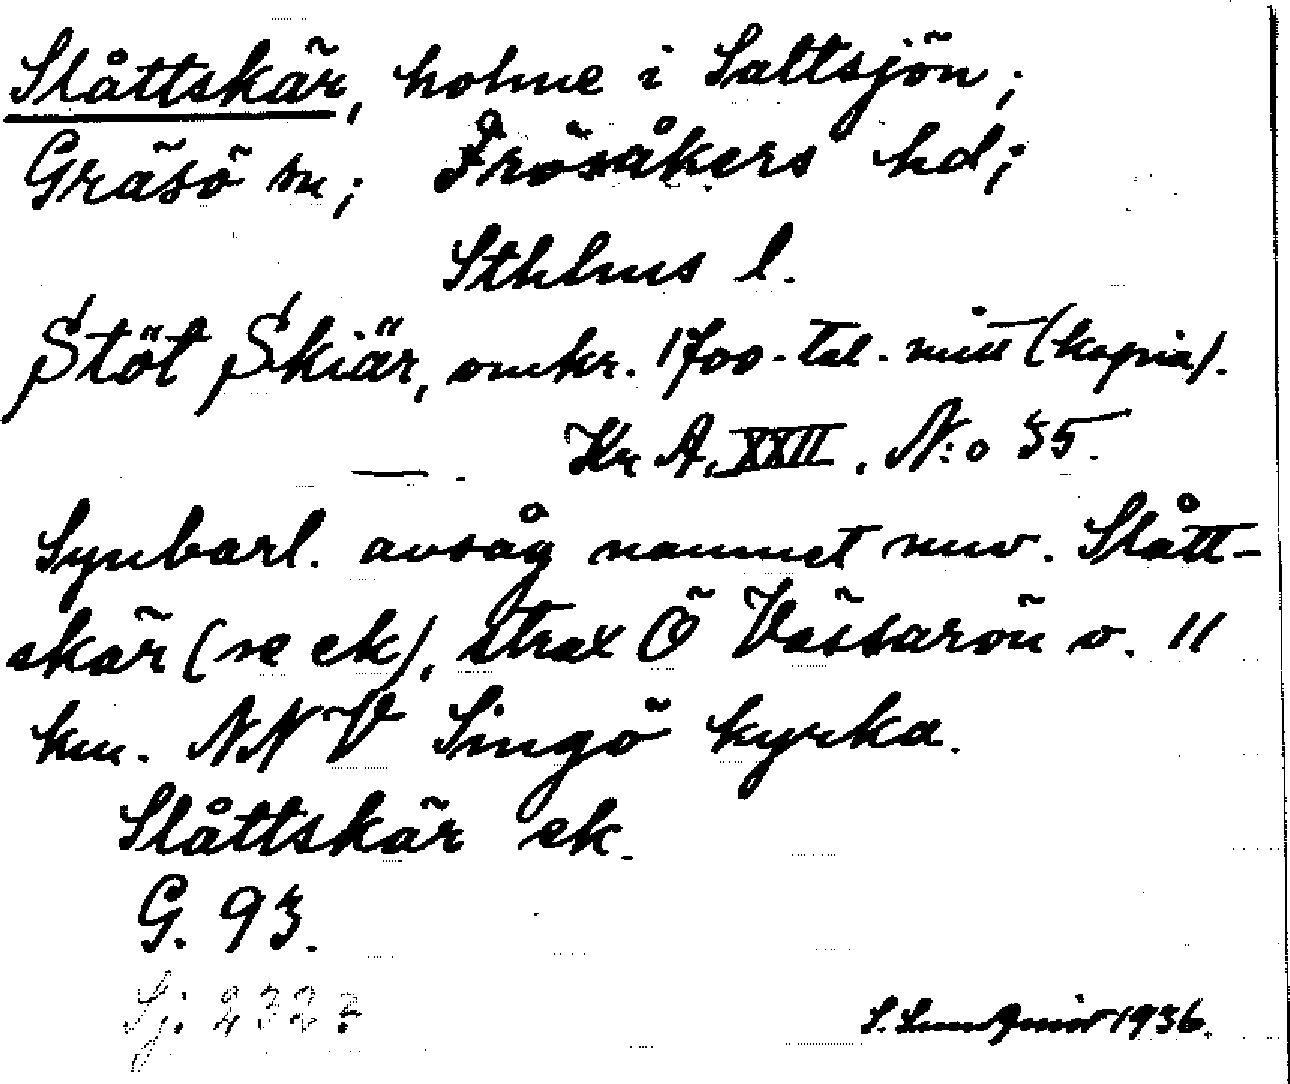 Slåttskär, holme i Saltsjön;
Gräsö sn; Frösåkers hd;
Sthlms l.
Stöt Skiär, omkr. 1700-tal. mitt (kopia).
— . Kr A. XXII. N:o 35.
Synbarl. avsåg namnet nuv. Slått-
skär (se ek), strax Ö Vässarön o. 11
km. NNV Singö kyrka.
Slåttskär ek.
G. 93.
Sj. 2323
1936.